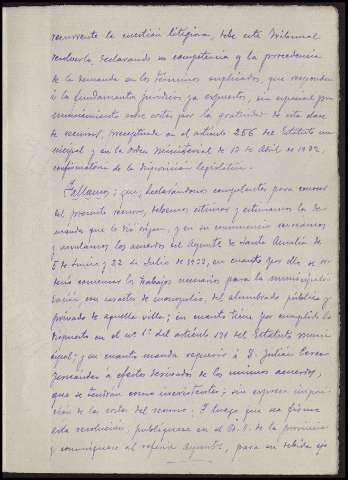 recurrente la cuestión litigiosa, debe este Tribunal
resolverla, declarando su competencia y la procedencia
de la demanda en los términos suplicados, que responden
a los fundamentos jurídicos ya expuestos, sin especial pro
nunciamiento sobre costas por la gratuidad de esta clase
de recursos, preceptuada en el artículo 256 del Estatuto mu
nicipal y en la Orden ministerial de 12 de Abril de 1932,
confirmatoria de la disposición legislativa.
Fallamos; que, declarándonos competentes para conocer
del presente recurso, debemos estimar y estimamos la de
manda que le dio origen, y en su consecuencia revocamos
y anulamos los acuerdos del Ayuntº de Santa Amalia de
5 de Junio y 22 de Julio de 1932, en cuanto por ellos se or
dena comenzar los trabajos necesarios para la municipali
zación, con carácter de monopolio, del alumbrado público y
privado de aquella villa; en cuanto tiene por cumplido lo
dispuesto en el nº 1º del artículo 171 del Estatuto muni
cipal; y en cuanto manda requerir a D. Julián
Fernández a efectos derivados de los mismos acuerdos,
que se tendrán como inexistentes; sin expresa imposi
ción de las costas del recurso. Y luego que sea firme
esta resolución, publíquese en el B. O. de la provincia
y comuníquese al referido Ayuntº, para su debida eje